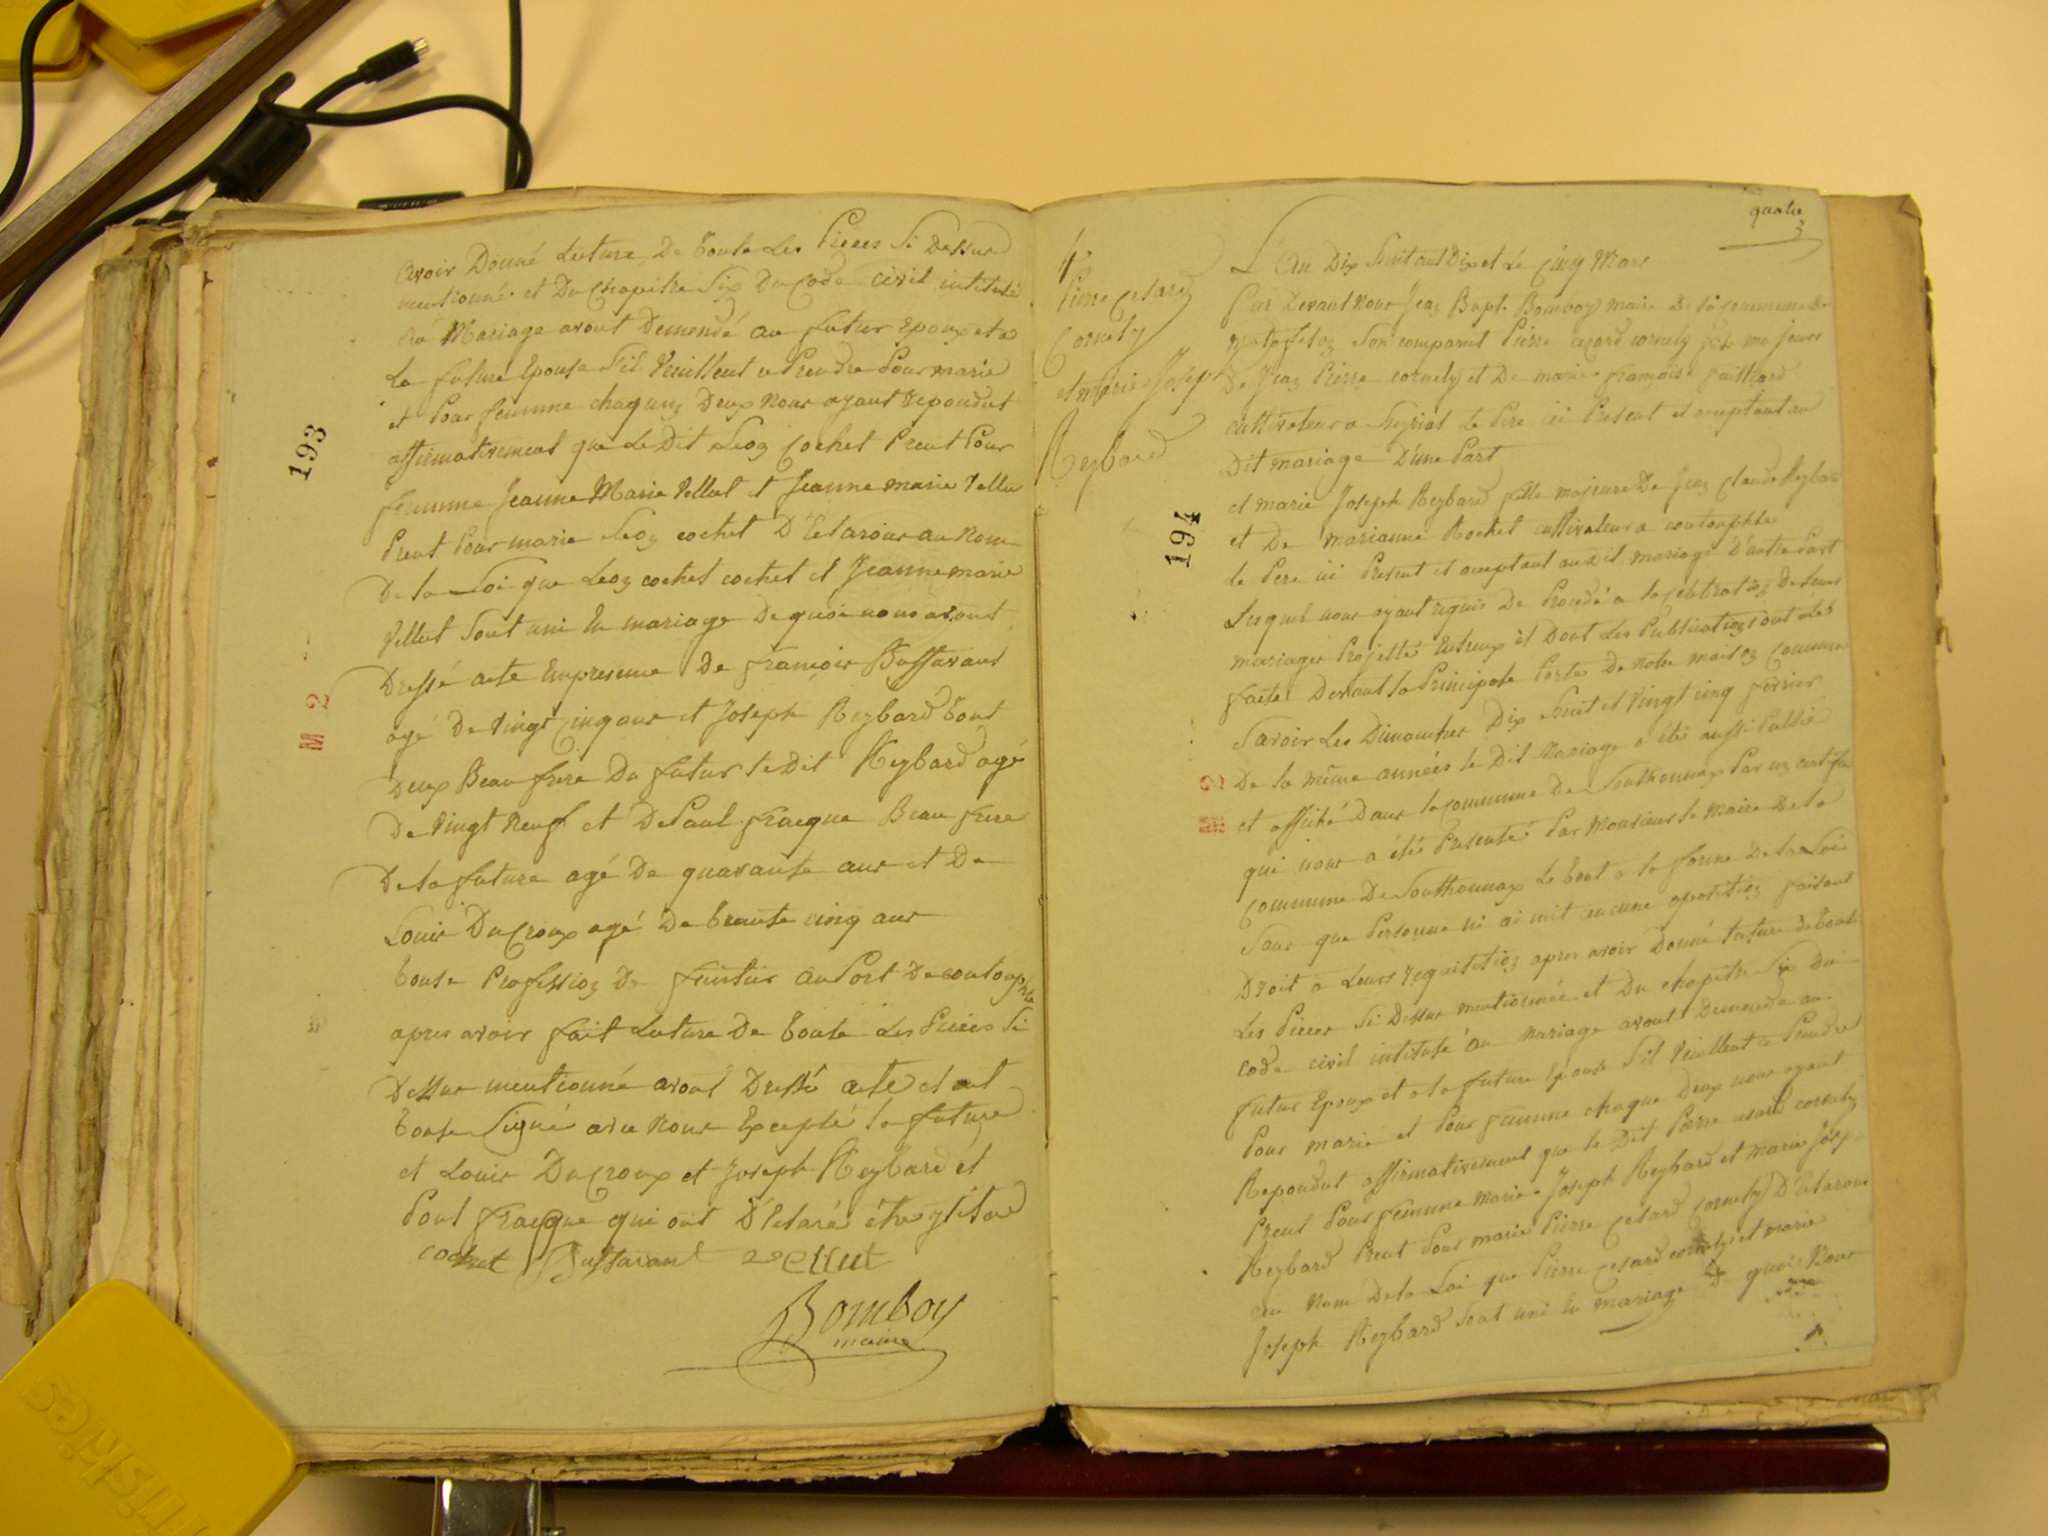 avoir Donné Lecture De toute Les Pieces Si Dessus
mentionné et Du Chapitre Six Du Code civil intitulé
Du Mariage avont Demendé au futur Epoux et a
La future Epouse S'il Veuillent ce Prendre Pour marie
et Pour femme chaquuz Deux Nous ayant repondut
affirmativement que Le Dit Leoz Cochet Prent Pour
femme Jeanne Marie Vellut et Jeanne marie Vellu
Prent Pour marie Leoz cochet D'Eclarons au Nom
De la Loi que Leoz cochet cochet et Jeanne marie
Vellut Sont uni En mariage De quoi nous avont
Dressé acte Enpresence De françois Buffavant
agé De Vingt Cinq ans et Joseph Reybard tout
Deux Beau frere Du futur le Dit Reybard agé
De Vingt Neuf et De Paul fracque Beau frere
De la future agé De quarante ans et De
Louis DuCroux agé De trante cinq ans
touse Professioz De au Port De contouphle
apres avoir fait Lecture De toute Les Pieces Si
Dessus mentionné avont Dressé acte et ont
touse Signé avec Nous Excepté la future
et Louis DuCroux et Joseph Reybard et
Poul fracque qui ont D'Eclaré être ylitaré
cochet Buffavant vellut
Bomboy
maire
193
M 2
quatre
3
4
Pierre Cesard
Cornety
et Marie Joseph
Reybard
194
M 2
L'an Dix Huit cent Dix et Le Cinq Mars
Par Devant Nous Jeaz Bapt. Bomboy maire De la commune De
Matafeloz Son comparut Pierre cezard cornety fils majeur
De Jeaz Pierre cornety et De marie françoise Gailliard
cultivateur a Heyriat Le Pere ici Present et acceptant au
Dit mariage D'une Part
et marie Joseph Reybard fille majeure De Jeaz Claude Reybar
et De marianne Rochet cultivateur a contouphle
le Pere ici Present et acceptant au dit mariage D'autre Part
Lesquel nous ayant requis De Procedé a la celebratioz De Leurs
mariages Projetté Entreux et Dont Les Publicatiozs ont Lété
faite Devant la Principale Porte De notre maisoz Commune
Savoir Les Dimanches Dix Huit et Vingt cinq fevrier
De la même années le Dit Mariage a été aussi Publié
et affiché Dans la Commune De Southonnax Par uz certifica
qui nous a été Presenté Par Monsieur le Maire De la
Commune De Southonnax Le tout a la forme De la Loi
Sans que Personne ni ai mit aucune opositioz faisant
Droit a Leurs requisitioz apres avoir Donné lecture De toute
Les Pieces Si Dessus mentionnée et Du chapitre Six Du
Code civil intitulé Du Mariage avont Demendé au
futur Epoux et a la future Epouse S'il Veuillent ce Prendre
Pour marie et Pour femme chaque Deux nous ayant
Repondut affirmativement que le Dit Pierre cesard cornety
Prent Pour femme Marie Joseph Reybard et marie Josep
Reybard Prent Pour marie Pierre Cesard Cornety D'Eclarons
au Nom De la Loi que Pierre Cesard cornety et Marie
Joseph Reybard Sont uni En mariage De quoi Nous